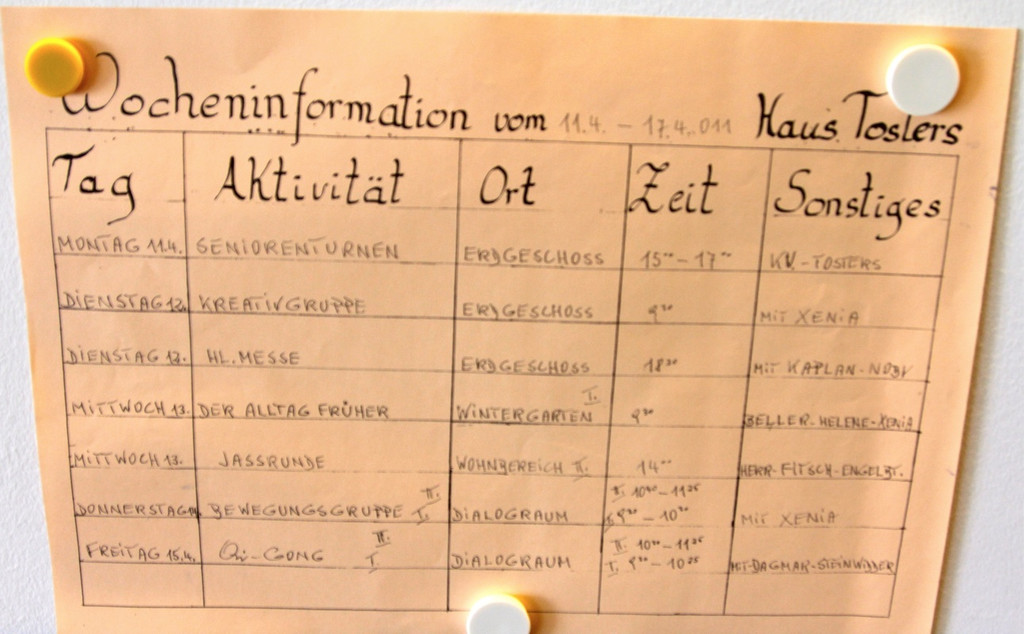 Wocheninformation vom 11.4. – 17.4.011 Haus Tosters
Tag Aktivität Ort Zeit Sonstiges
MONTAG 11.4. SENIORENTURNEN ERDGESCHOSS 15⁰⁰ – 17⁰⁰ KV.-TOSTERS
DIENSTAG 12. KREATIVGRUPPE ERDGESCHOSS 9³⁰ MIT XENIA
DIENSTAG 12. HL. MESSE ERDGESCHOSS 18³⁰ MIT KAPLAN-NOBY
MITTWOCH 13. DER ALLTAG FRÜHER WINTERGARTEN I. 9³⁰ BELLER-HELENE-XENIA
MITTWOCH 13. JASSRUNDE WOHNBEREICH II. 14⁰⁰ HERR-FITSCH-ENGELBT.
DONNERSTAG BEWEGUNGSGRUPPE II. I. DIALOGRAUM II. 10⁴⁰ – 11²⁵ I. 9³⁰ – 10³⁰ MIT XENIA
FREITAG 15.4. Qi-GONG II. I. DIALOGRAUM II. 10³⁰ – 11²⁵ I. 9³⁰ – 10²⁵ MIT-DAGMAR-STEINWIDDER